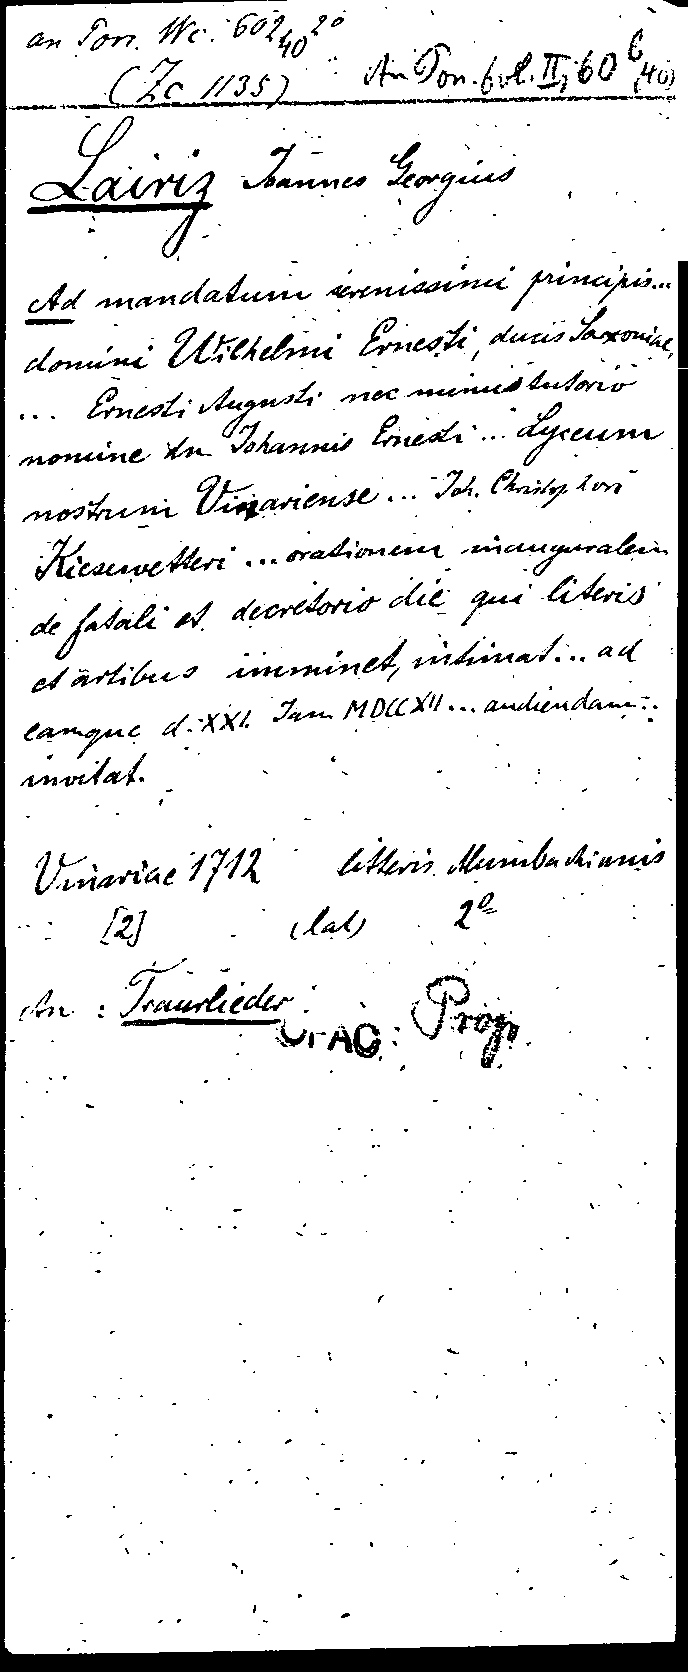 an Pon. We. 602 40 2°
(Zc 1135)
An Pon. fol. II, 60 6 (40)
Lairiz Joannes Georgius
Ad mandatum serenissimi principis...
domini Wilhelmi Ernesti, ducis Saxoniae,
... Ernesti Augusti nec minus tutorio
nomine dn Johannis Ernesti... Lyceum
nostrum Vinariense... Joh. Christophori
Kiesewetteri ... orationem inauguralem
de fatali et decretorio die qui literis
et artibus imminet, intimat... ad
eamque d. XXI. Jan. MDCCXII... audiendam..
invitat.
Vinariae 1712 litteris Mumbachianis
[2] (lat) 2°
An: Traurlieder
Prop.